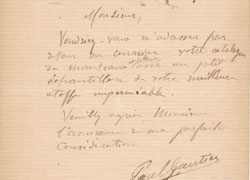 Monsieur,
Voudriez-vous m'adresser par
retour du courrier votre catalogue
de manteaux avec un petit
échantillon de votre meilleure
étoffe imperméable.
Veuillez agréer, Monsieur,
l'assurance de ma parfaite
considération.
Paul Gautier